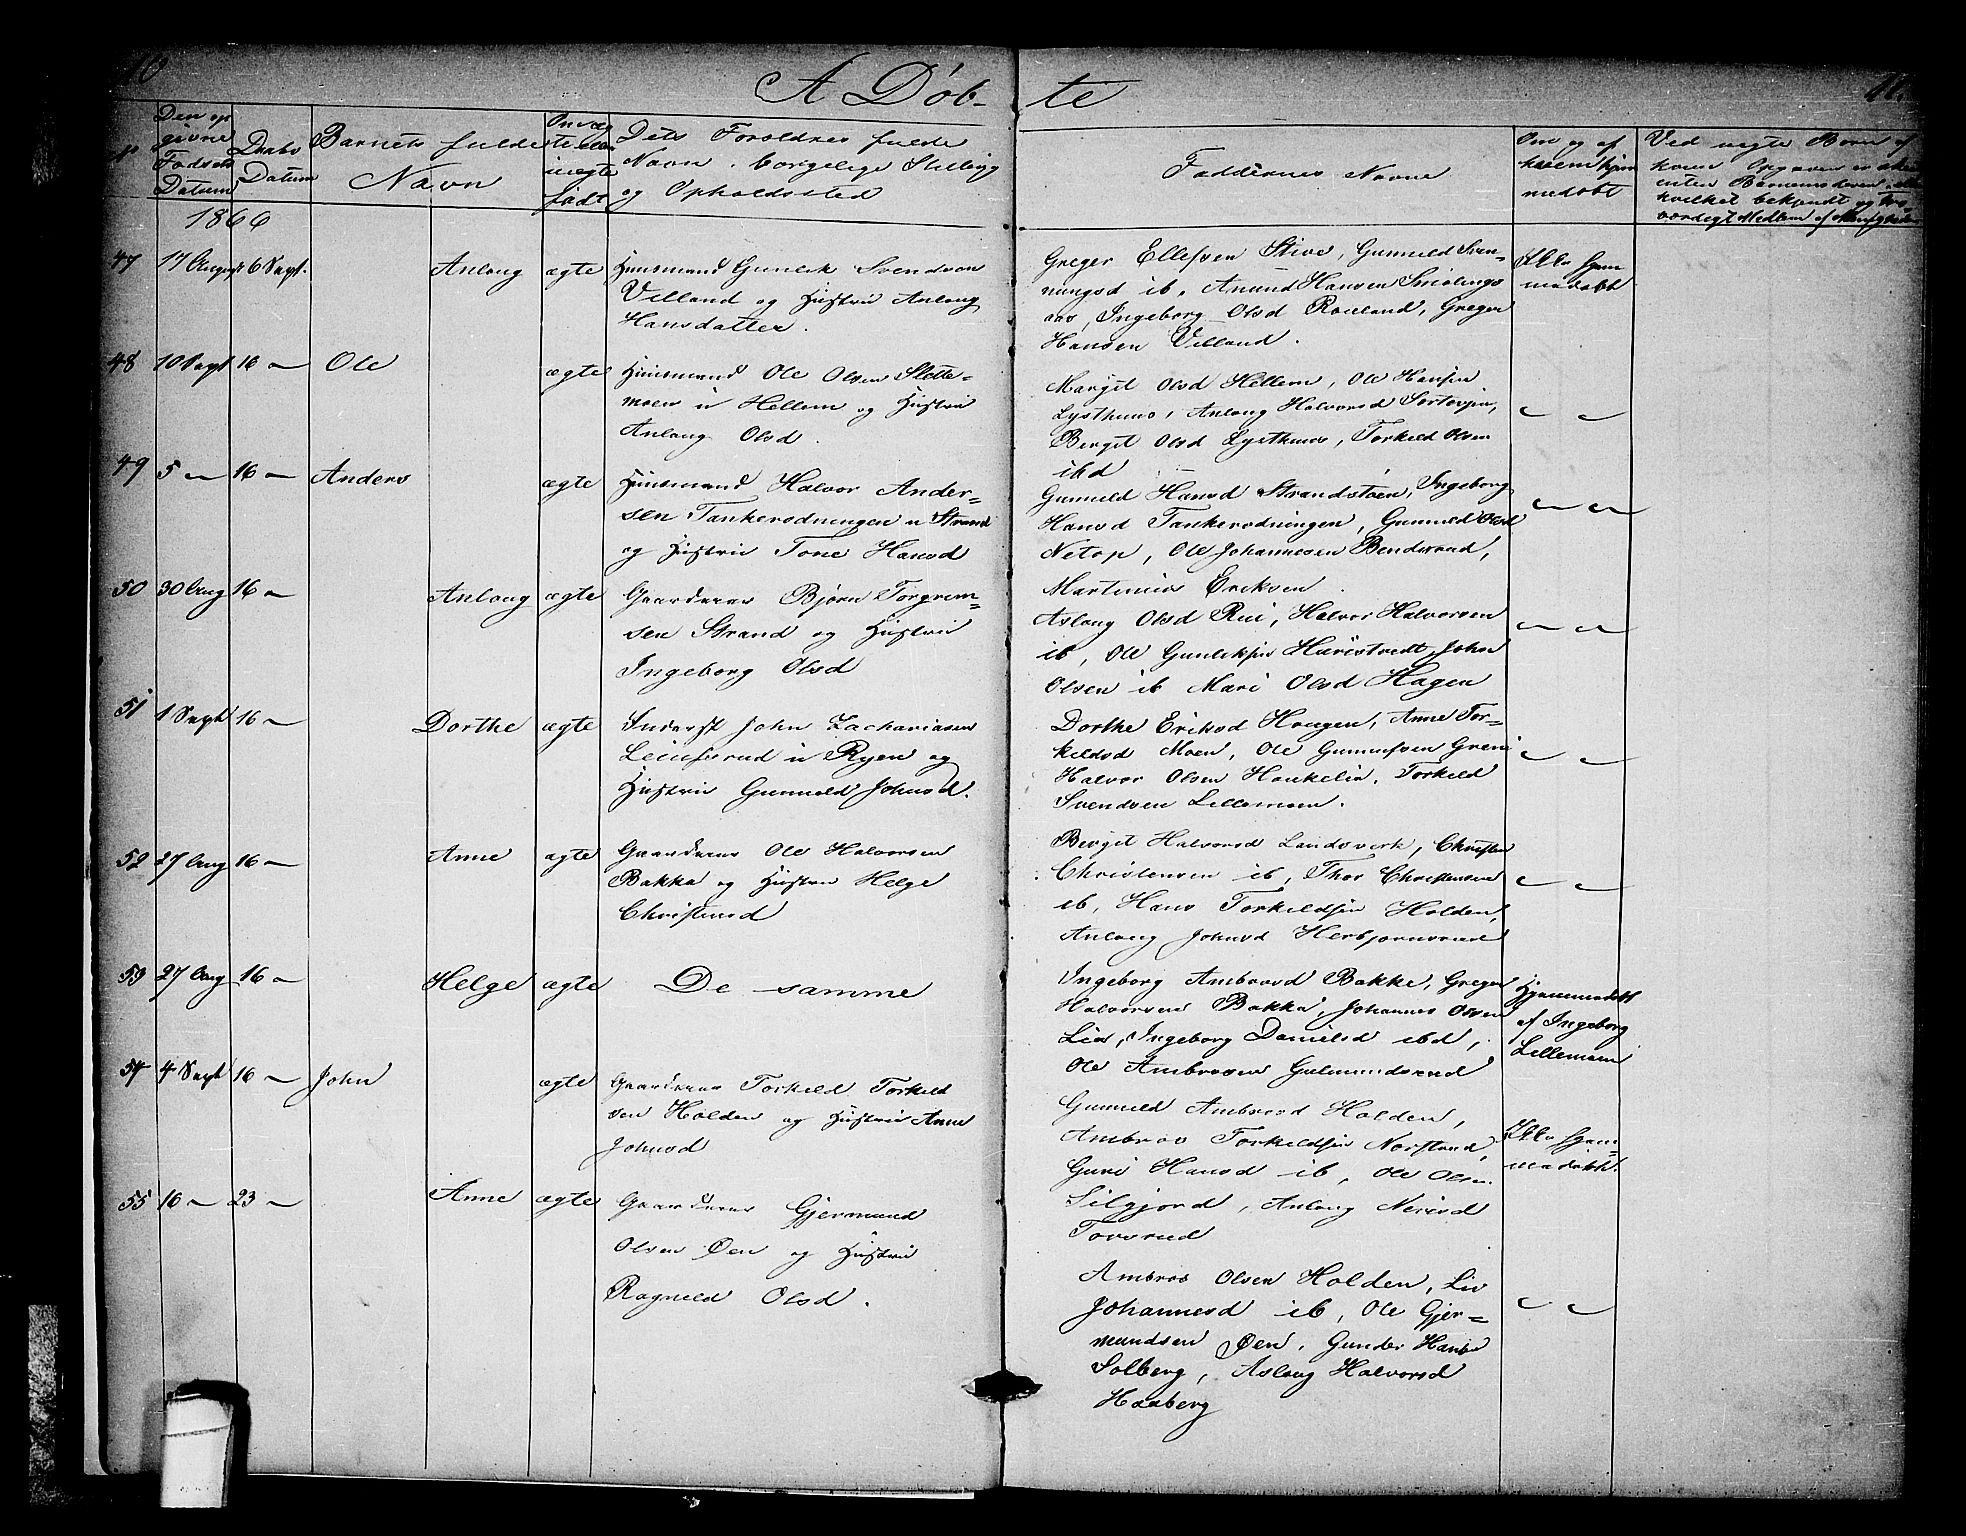 10
A Døb-
te
11.
No
Den op
givne
Fødsels
Datum
Daabs
Datum
Barnets fulde
Navn
Om æg
te eller
uægte
født
Dets Foreldres fulde
Navn, borgelige Stilling
og Opholdssted
Faddernes Navne
Om og af
hvem hjem
medøbt
Ved uægte Børn af
hvem Opgaven er
enten Barnemoderen
hvilket bekjendt og tro-
værdigt Medlem af Menigheden
1866
47 17 August 6 Sept. Aslaug ægte Huusmand Gunlek Svendsen
Villand og Hustru Aslaug
Hansdatter.
Greger Ellefsen Stive, Gunnild Sven-
nungsd ib, Anund Hansen Smølings
aas, Ingeborg Olsd Rouland, Greger
Hansen Villand.
Ikke hjem
medøbt
48 10 Sept 16 — Ole ægte Huusmand Ole Olsen Slette-
moen u Hellem og Hustru
Aslaug Olsd.
Margit Olsd Hellem, Ole Hansen
Lysthuus, Aslaug Halvorsd
Bergit Olsd Lysthuus, Torkild Olsen
ibd
49 5 — 16 — Anders ægte Huusmand Halvor Ander-
sen Tankerodningen u Strand
og Hustru Tone Hansd
Gunnild Hansd Strandstøen, Ingeborg
Hansd Tankerodningen, Gunnild Olsd
Netop, Ole Johannesen Bendsrud,
Martinius Eriksen
50 30 Aug 16 — Aslaug ægte Gaardeier Bjørn Torgrim-
sen Strand og Hustru
Ingeborg Olsd
Aslaug Olsd Rui, Halvor Halvorsen
ib, Ole Gunleksen Haristvedt, John
Olsen ib Mari Olsd Hagen
51 1 Sept 16 — Dorthe ægte Inderst John Zachariasen
Leiufsrud u Ryen og
Hustru Gunnild Johnsd.
Dorthe Eriksd Haugen, Anne Tor-
kildsd Moen, Ole Gunnufsen Grene
Halvor Olsen Haukelia, Torkild
Svendsen Lillemoen.
52 27 Aug 16 — Anne ægte Gaardeier Ole Halvorsen
Bakka og Hustru Helge
Christensd
Bergit Halvorsd Landsverk, Christen
Christensen ib, Thor Christensen
ib, Hans Torkildsen Holden,
Aslaug Johnsd Herbjørnsrud
53 27 Aug 16 — Helge ægte De samme
Ingeborg Ambrosd Bakke, Greger
Halvorsen Bakka, Johannes Olsen
Lia, Ingeborg Danielsd ibd,
Ole Ambrosen Gulmundsrud
Hjemmedøbt
af Ingeborg
Lillemoen
54 4 Sept 16 — John ægte Gaardeier Torkild Torkild
sen Holden og Hustru Anne
Johnsd
Gunnild Ambrosd Holden,
Ambros Torkildsen Norstrand,
Guri Hansd ib, Ole Olsen
Silgjord, Aslaug Nerisd
Torsrud
Ikke hjem-
medøbt.
55 16 — 23 — Anne ægte Gaardeier Gjermund
Olsen Øen og Hustru
Ragnild Olsd.
Ambros Olsen Holden, Liv
Johannesd ib, Ole Gjer-
mundsen Øen, Gunder Hansen
Solberg, Aslaug Halvorsd
Haaberg